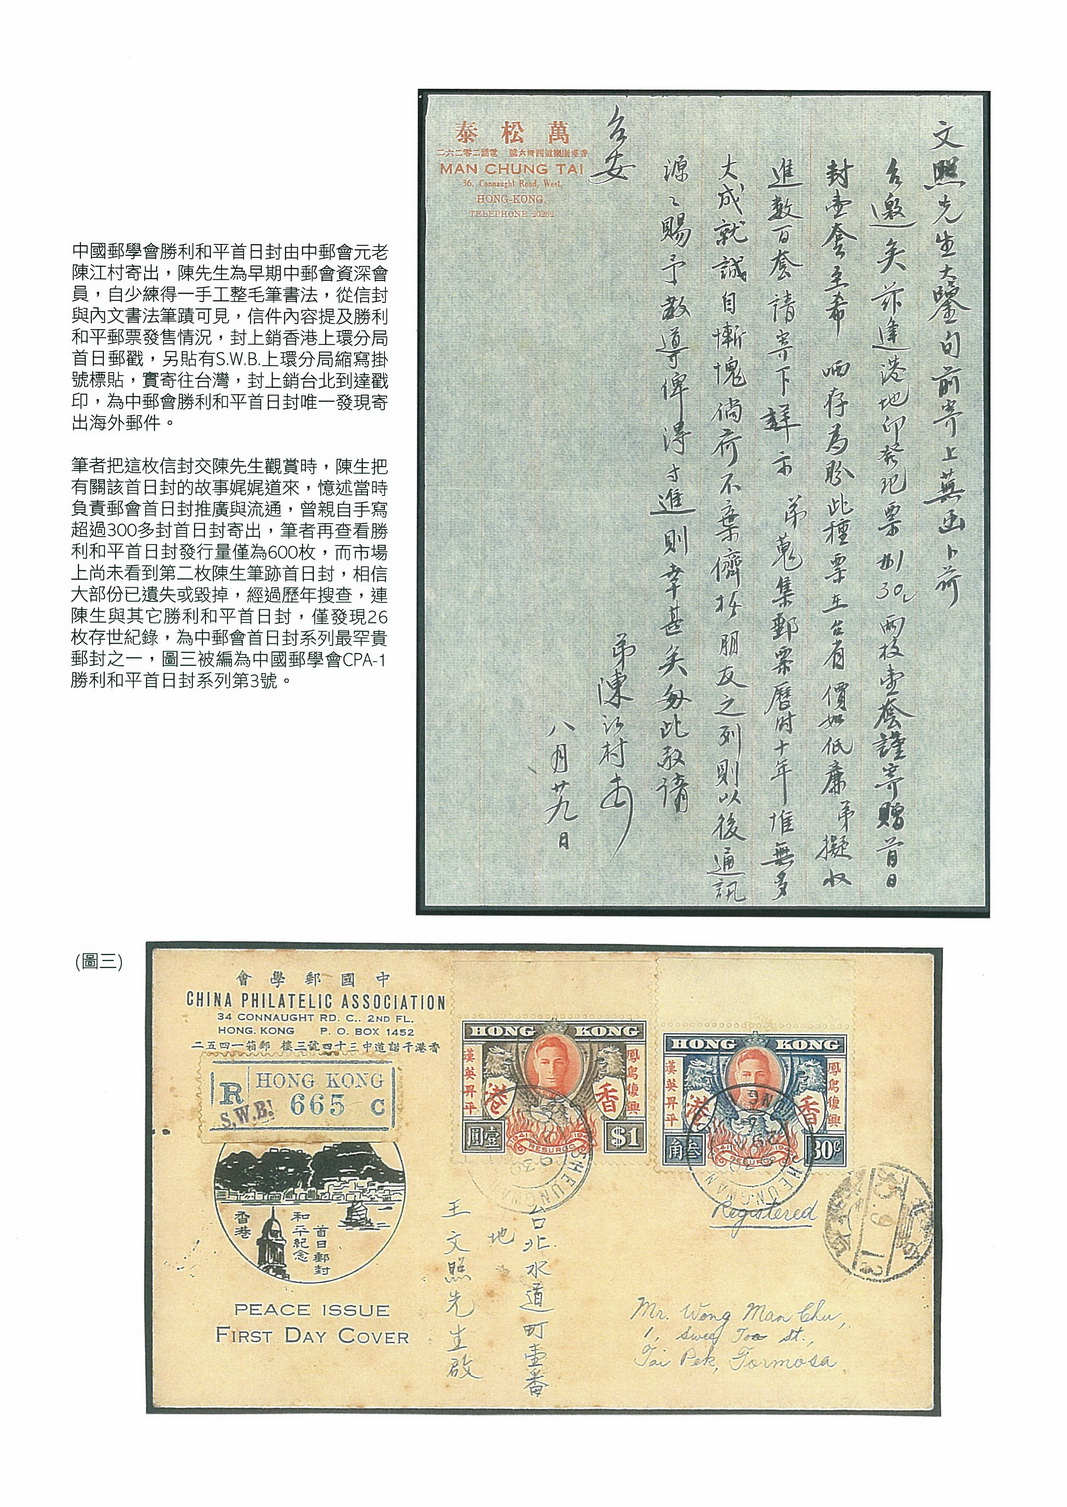 中國郵學會勝利和平首日封由中郵會元老
陳江村寄出，陳先生為早期中郵會資深會
員，自少練得一手工整毛筆書法，從信封
與內文書法筆蹟可見，信件內容提及勝利
和平郵票發售情況，封上銷香港上環分局
首日郵戳，另貼有S.W.B.上環分局縮寫掛
號標貼，實寄往台灣，封上銷台北到達戳
印，為中郵會勝利和平首日封唯一發現寄
出海外郵件。
筆者把這枚信封交陳先生觀賞時，陳生把
有關該首日封的故事娓娓道來，憶述當時
負責郵會首日封推廣與流通，曾親自手寫
超過300多封首日封寄出，筆者再查看勝
利和平首日封發行量僅為600枚，而市場
上尚未看到第二枚陳生筆跡首日封，相信
大部份已遺失或毀掉，經過歷年搜查，連
陳生與其它勝利和平首日封，僅發現26
枚存世紀錄，為中郵會首日封系列最罕貴
郵封之一，圖三被編為中國郵學會CPA-1
勝利和平首日封系列第3號。
泰松萬
MAN CHUNG TAI
36, Connaught Road, West,
HONG-KONG.
TELEPHONE 20262
文照先生大鑒旬前寄上蕪函卜荷
台邀矣茲逢港地印發紀票 30c 兩枚壹套謹寄贈首日
封壹套至希 哂存為盼此種票在台省價如低廉弟擬收
進數百套請寄下詳示 弟蒐集郵票曆时十年惟無多
大成就誠自慚愧倘荷不棄儕於朋友之列則以後通訊
源々賜予教導俾得寸進則幸甚矣匆此敬請
台安
弟陳江村
八月廿九日
(圖三)
會學郵國中
CHINA PHILATELIC ASSOCIATION
34 CONNAUGHT RD. C., 2ND FL.
HONG. KONG P. O. BOX 1452
二五四一箱郵 樓三號四十三中道諾干港香
R HONG KONG
665 C
S.W.B.
香港
和平紀念
首日郵封
PEACE ISSUE
FIRST DAY COVER
HONG KONG
漢英昇平
鳳鳥復興
港 香
圓壹
1941 1945
RESURGO
$1
HONG KONG
漢英昇平
鳳鳥復興
港 香
角叁
RESURGO
30c
SHEUNGWAN
Registered
台北水道町壹番
地
王文照先生啟
Mr. Wong Man Chu,
Tai Pek, Formosa.